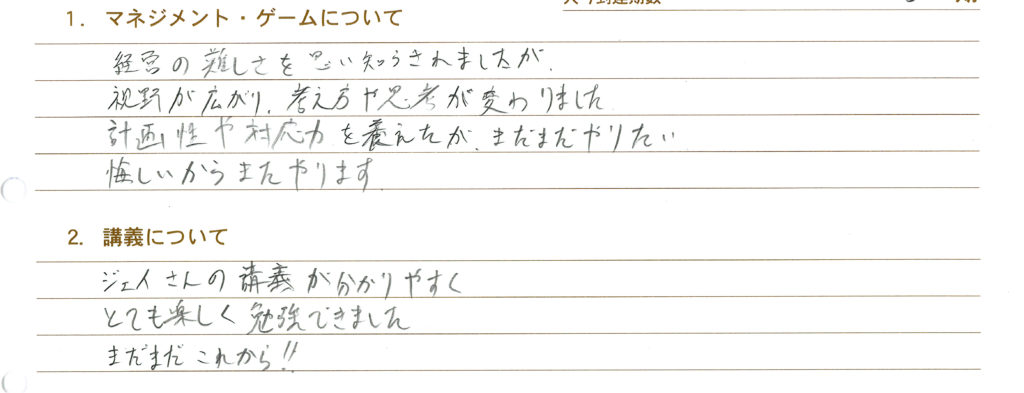 1. マネジメント・ゲームについて
経営の難しさを思い知らされましたが、
視野が広がり、考え方や思考が変わりました
計画性や対応力を養えたが、まだまだやりたい
悔しいからまたやります
2. 講義について
ジェイさんの講義が分かりやすく
とても楽しく勉強できました
まだまだこれから!!